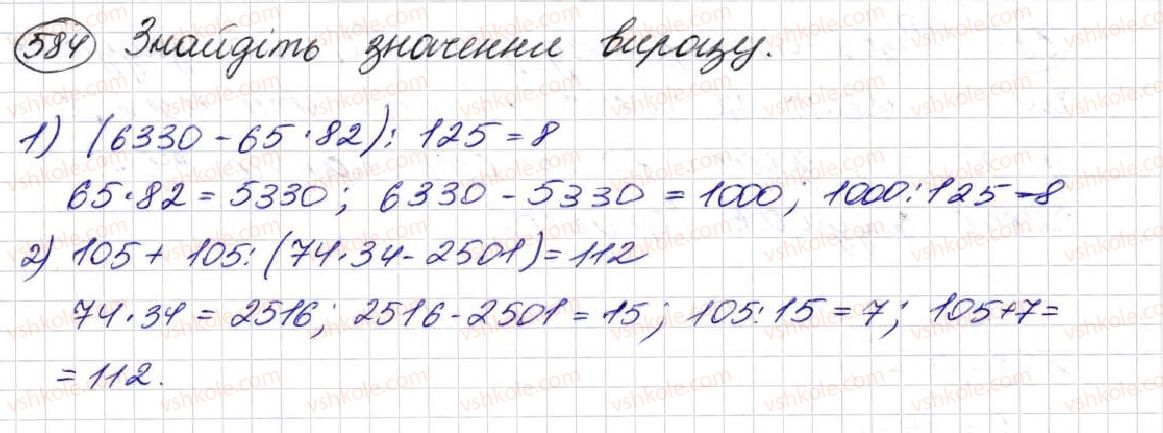 584 Знайдіть значення виразу.
1) (6330 - 65 · 82) : 125 = 8
65 · 82 = 5330; 6330 - 5330 = 1000; 1000 : 125 = 8
2) 105 + 105 : (74 · 34 - 2501) = 112
74 · 34 = 2516; 2516 - 2501 = 15; 105 : 15 = 7; 105 + 7 =
= 112.